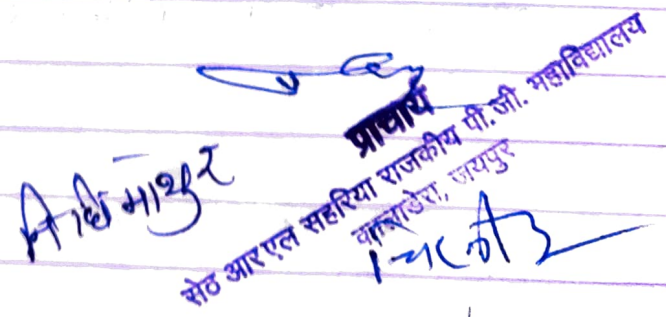 प्राचार्य
सेठ आर एल सहरिया राजकीय पी.जी. महाविद्यालय
कालाडेरा, जयपुर
निधि माथुर